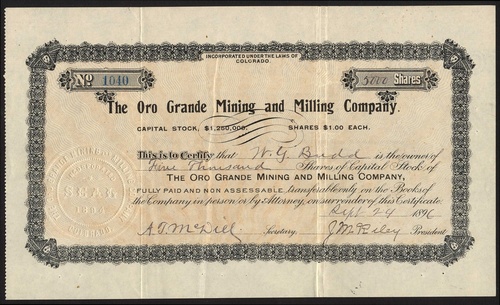 INCORPORATED UNDER THE LAWS OF
COLORADO.
No 1040
5000 Shares
The Oro Grande Mining and Milling Company.
CAPITAL STOCK, $1,250,000. SHARES $1.00 EACH.
This is to Certify that W. G. Budd is the owner of
Five Thousand Shares of Capital Stock of
THE ORO GRANDE MINING AND MILLING COMPANY,
FULLY PAID AND NON ASSESSABLE, transferable only on the Books of
the Company in person or by Attorney, on surrender of this Certificate.
Sept 24 1896
A T McDill Secretary. J M Riley President
SEAL
COLORADO